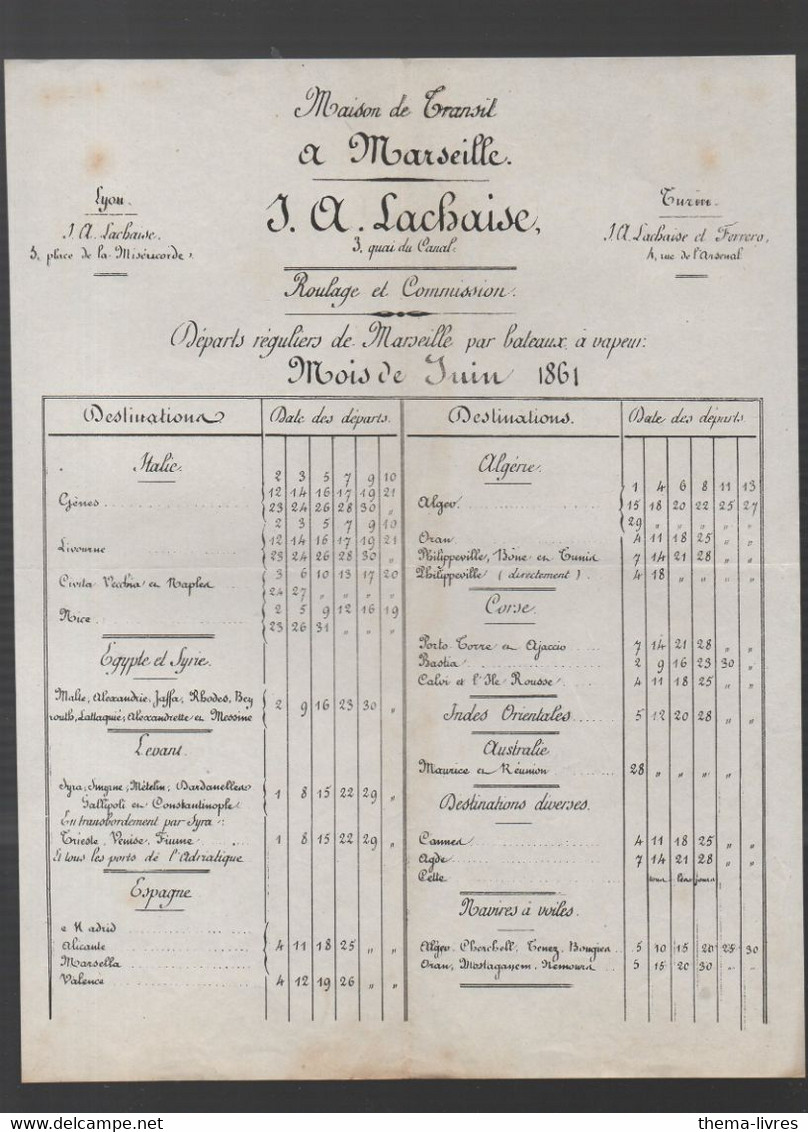 Maison de Transit
a Marseille.
Lyon.
J. A. Lachaise,
3, place de la Miséricorde.
J. A. Lachaise,
3, quai du Canal.
Turin.
J. A. Lachaise et Ferrero,
4, rue de l'Arsenal
Roulage et Commission.
Départs réguliers de Marseille par bateaux à vapeur:
Mois de Juin 1861
Destinations Date des départs.
Italie.
2 3 5 7 9 10
Gênes 12 14 16 17 19 21
23 24 26 28 30 "
2 3 5 7 9 10
Livourne 12 14 16 17 19 21
23 24 26 28 30 "
Civita Vecchia et Naples 3 6 10 13 17 20
24 27 " " " "
Nice 2 5 9 12 16 19
23 26 31 " " "
Egypte et Syrie.
Malte, Alexandrie, Jaffa, Rhodes, Bey
routh, Lattaquié, Alexandrette et Messine 2 9 16 23 30 "
Levant.
Syra, Smyrne, Mételin, Dardanelles
Gallipoli et Constantinople 1 8 15 22 29 "
En transbordement par Syra:
Trieste, Venise, Fiume 1 8 15 22 29 "
Et tous les ports de l'Adriatique
Espagne
Madrid
Alicante 4 11 18 25 " "
Marsella
Valence 4 12 19 26 " "
Destinations. Date des départs
Algérie.
1 4 6 8 11 13
Alger 15 18 20 22 25 27
29 " " " " "
Oran 4 11 18 25 " "
Philippeville, Bône et Tunis 7 14 21 28 " "
Philippeville (directement) 4 18 " " " "
Corse.
Porto Torre et Ajaccio 7 14 21 28 " "
Bastia 2 9 16 23 30 "
Calvi et l'Ile Rousse 4 11 18 25 " "
Indes Orientales 5 12 20 28 " "
Australie
Maurice et Réunion 28 " " " " "
Destinations diverses.
Cannes 4 11 18 25 " "
Agde 7 14 21 28 " "
Cette tous les jours
Navires à voiles.
Alger, Cherchell, Tenez, Bougies 5 10 15 20 25 30
Oran, Mostaganem, Nemours 5 15 20 30 " "
thema-livres